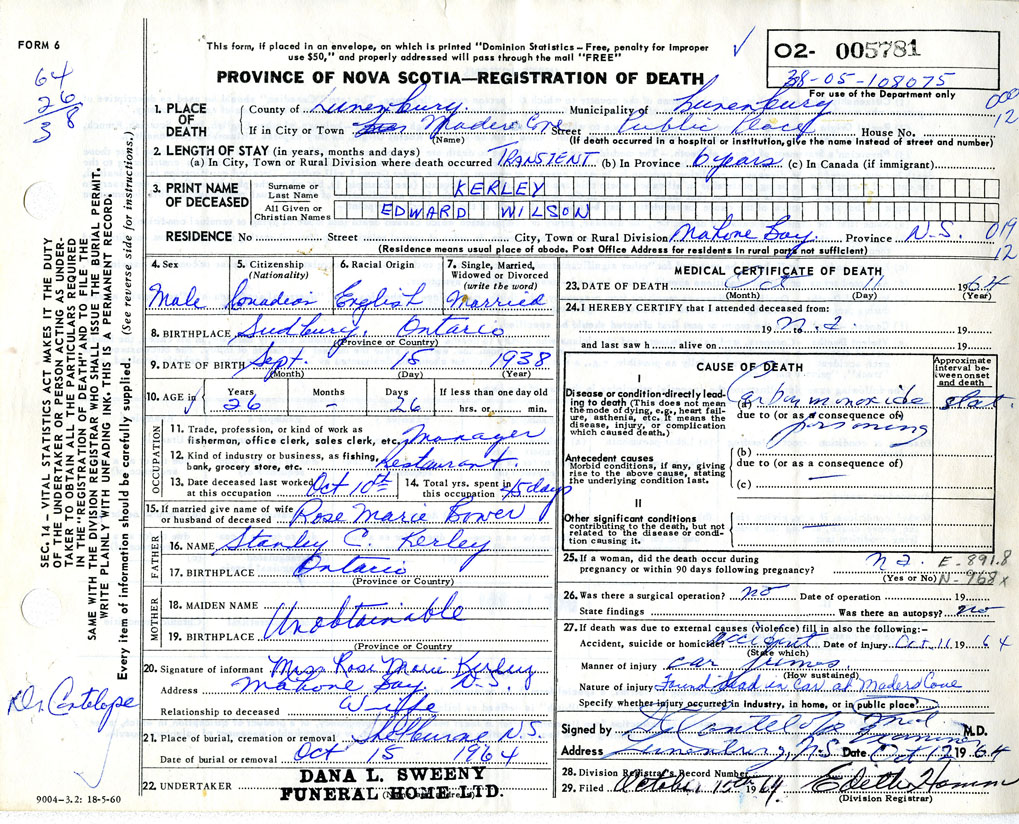 FORM 6
This form, if placed in an envelope, on which is printed "Dominion Statistics – Free, penalty for improper
use $50," and properly addressed will pass through the mail "FREE"
✓
O2- 005781
38-05-108075
For use of the Department only
64
26
38
PROVINCE OF NOVA SCOTIA—REGISTRATION OF DEATH
1. PLACE OF DEATH
County of Lunenburg Municipality of Lunenburg
If in City or Town Maders Cove Street Public Place House No.
(Name) (If death occurred in a hospital or institution, give the name instead of street and number)
12
2. LENGTH OF STAY (in years, months and days)
(a) In City, Town or Rural Division where death occurred TRANSIENT (b) In Province 6 years (c) In Canada (if immigrant)
3. PRINT NAME OF DECEASED
Surname or Last Name KERLEY
All Given or Christian Names EDWARD WILSON
RESIDENCE No Street City, Town or Rural Division Mahone Bay. Province N.S.
(Residence means usual place of abode. Post Office Address for residents in rural parts not sufficient)
019
12
4. Sex Male
5. Citizenship (Nationality) Canadian
6. Racial Origin English
7. Single, Married, Widowed or Divorced (write the word) Married
8. BIRTHPLACE Sudbury, Ontario
(Province or Country)
9. DATE OF BIRTH Sept. 15 1938
(Month) (Day) (Year)
10. AGE in Years 26 Months – Days 26 If less than one day old hrs. or min.
OCCUPATION
11. Trade, profession, or kind of work as fisherman, office clerk, sales clerk, etc. Manager
12. Kind of industry or business, as fishing, bank, grocery store, etc. Restaurant.
13. Date deceased last worked at this occupation Oct 10th
14. Total yrs. spent in this occupation 45 days
15. If married give name of wife or husband of deceased Rose Marie Bower
FATHER
16. NAME Stanley C. Kerley
17. BIRTHPLACE Ontario
(Province or Country)
MOTHER
18. MAIDEN NAME
19. BIRTHPLACE Unobtainable
(Province or Country)
20. Signature of informant Rose Marie Kerley
Address Mahone Bay N.S.
Relationship to deceased Wife
21. Place of burial, cremation or removal Shelburne N.S.
Date of burial or removal Oct 15 1964
22. UNDERTAKER DANA L. SWEENY
FUNERAL HOME LTD.
9004—3.2: 18-5-60
SEC. 14 — VITAL STATISTICS ACT MAKES IT THE DUTY
OF THE UNDERTAKER OR PERSON ACTING AS UNDER-
TAKER TO OBTAIN ALL THE PARTICULARS REQUIRED
IN THE "REGISTRATION OF DEATH" AND TO FILE THE
SAME WITH THE DIVISION REGISTRAR WHO SHALL ISSUE THE BURIAL PERMIT.
WRITE PLAINLY WITH UNFADING INK. THIS IS A PERMANENT RECORD.
Every item of information should be carefully supplied. (See reverse side for instructions.)
Dr. Cantelope
MEDICAL CERTIFICATE OF DEATH
23. DATE OF DEATH Oct 11 1964
(Month) (Day) (Year)
24. I HEREBY CERTIFY that I attended deceased from:
19 n.a 19
and last saw h alive on 19
CAUSE OF DEATH
Approximate interval between onset and death
I
Disease or condition directly leading to death (This does not mean the mode of dying, e.g., heart failure, asthenia, etc. It means the disease, injury, or complication which caused death.)
(a) Carbon monoxide
due to (or as a consequence of)
poisoning
Antecedent causes
Morbid conditions, if any, giving rise to the above cause, stating the underlying condition last.
(b)
due to (or as a consequence of)
(c) —
II
Other significant conditions contributing to the death, but not related to the disease or condition causing it. —
25. If a woman, did the death occur during pregnancy or within 90 days following pregnancy? n a.
(Yes or No)
E-891.8
N-968x
26. Was there a surgical operation? no Date of operation 19
State findings Was there an autopsy? no
27. If death was due to external causes (violence) fill in also the following:—
Accident, suicide or homicide? accident Date of injury Oct 11 1964
(State which)
Manner of injury car fumes.
(How sustained)
Nature of injury Found dead in Car at Maders Cove
Specify whether injury occurred in Industry, in home, or in public place?
Signed by M.D.
Address Lunenburg, N.S Date Oct 12 1964
28. Division Registrar's Record Number
29. Filed October 15th 1964 Edith
(Division Registrar)